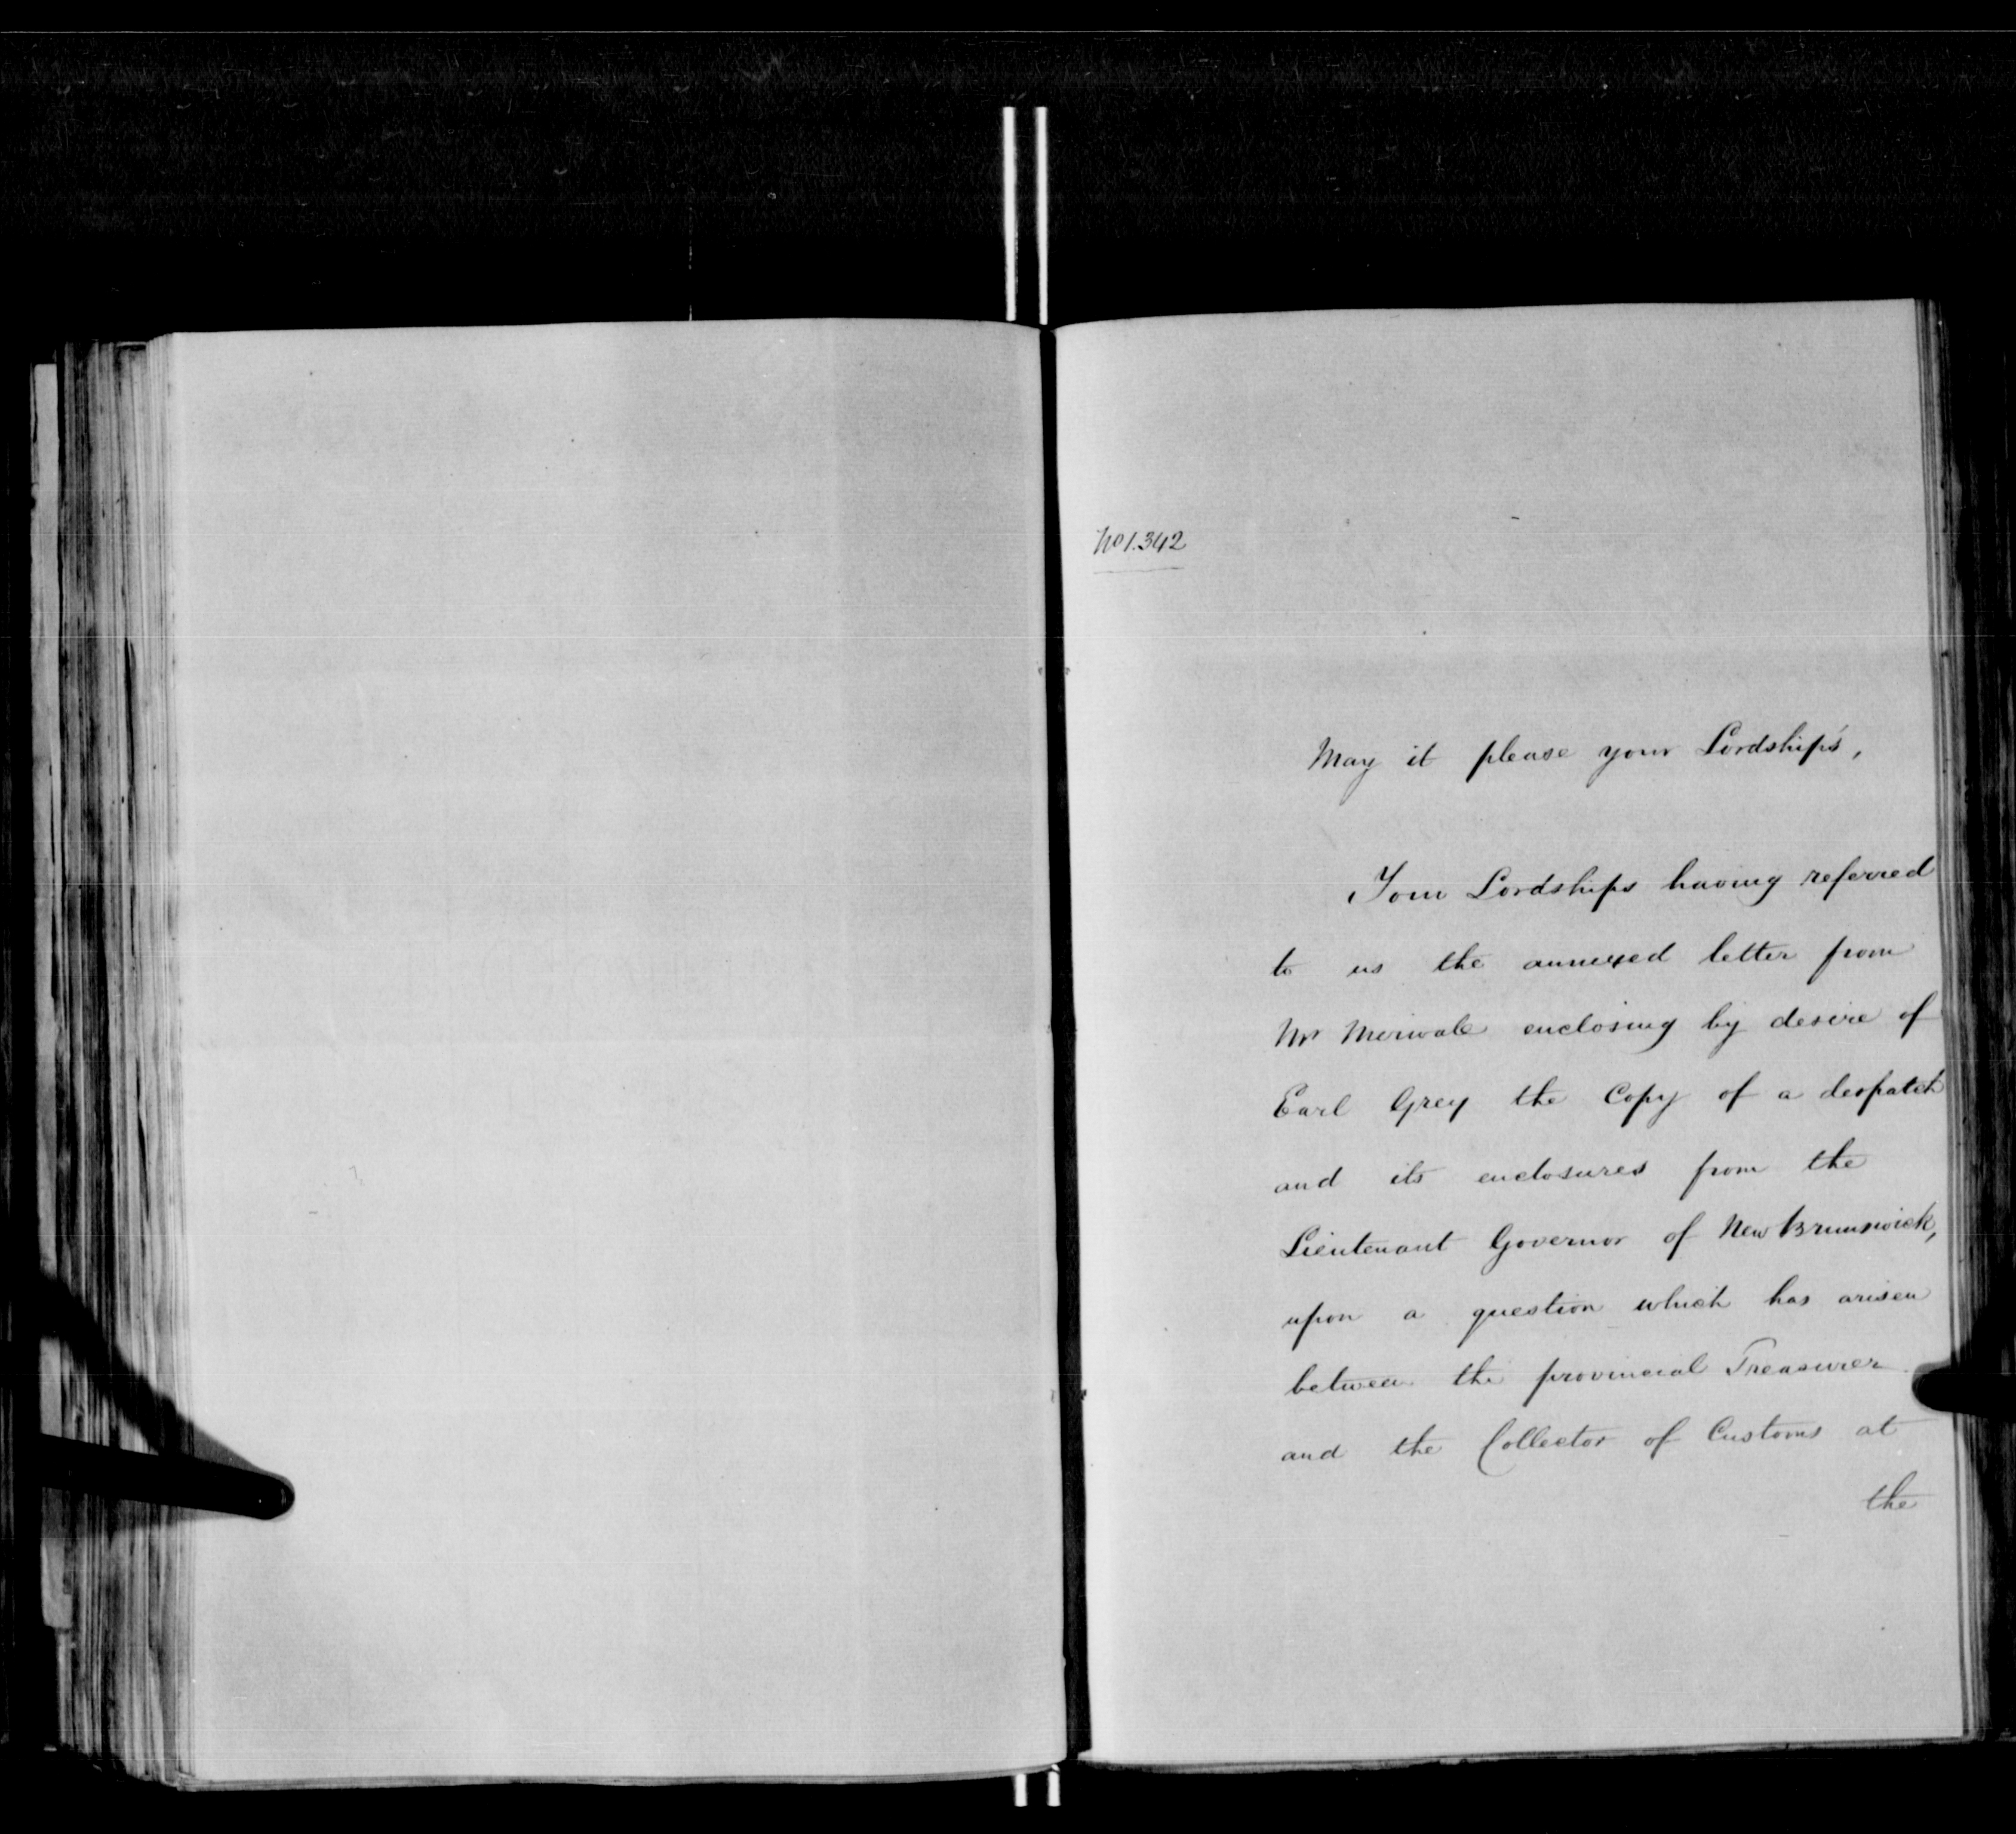 No 1.342
May it please your Lordship's,
Your Lordships having referred
to us the annexed letter from
Mr Merivale enclosing by desire of
Earl Grey the Copy of a despatch
and its enclosures from the
Lieutenant Governor of New Brunswick,
upon a question which has arisen
between the provincial Treasurer
and the Collector of Customs at
the